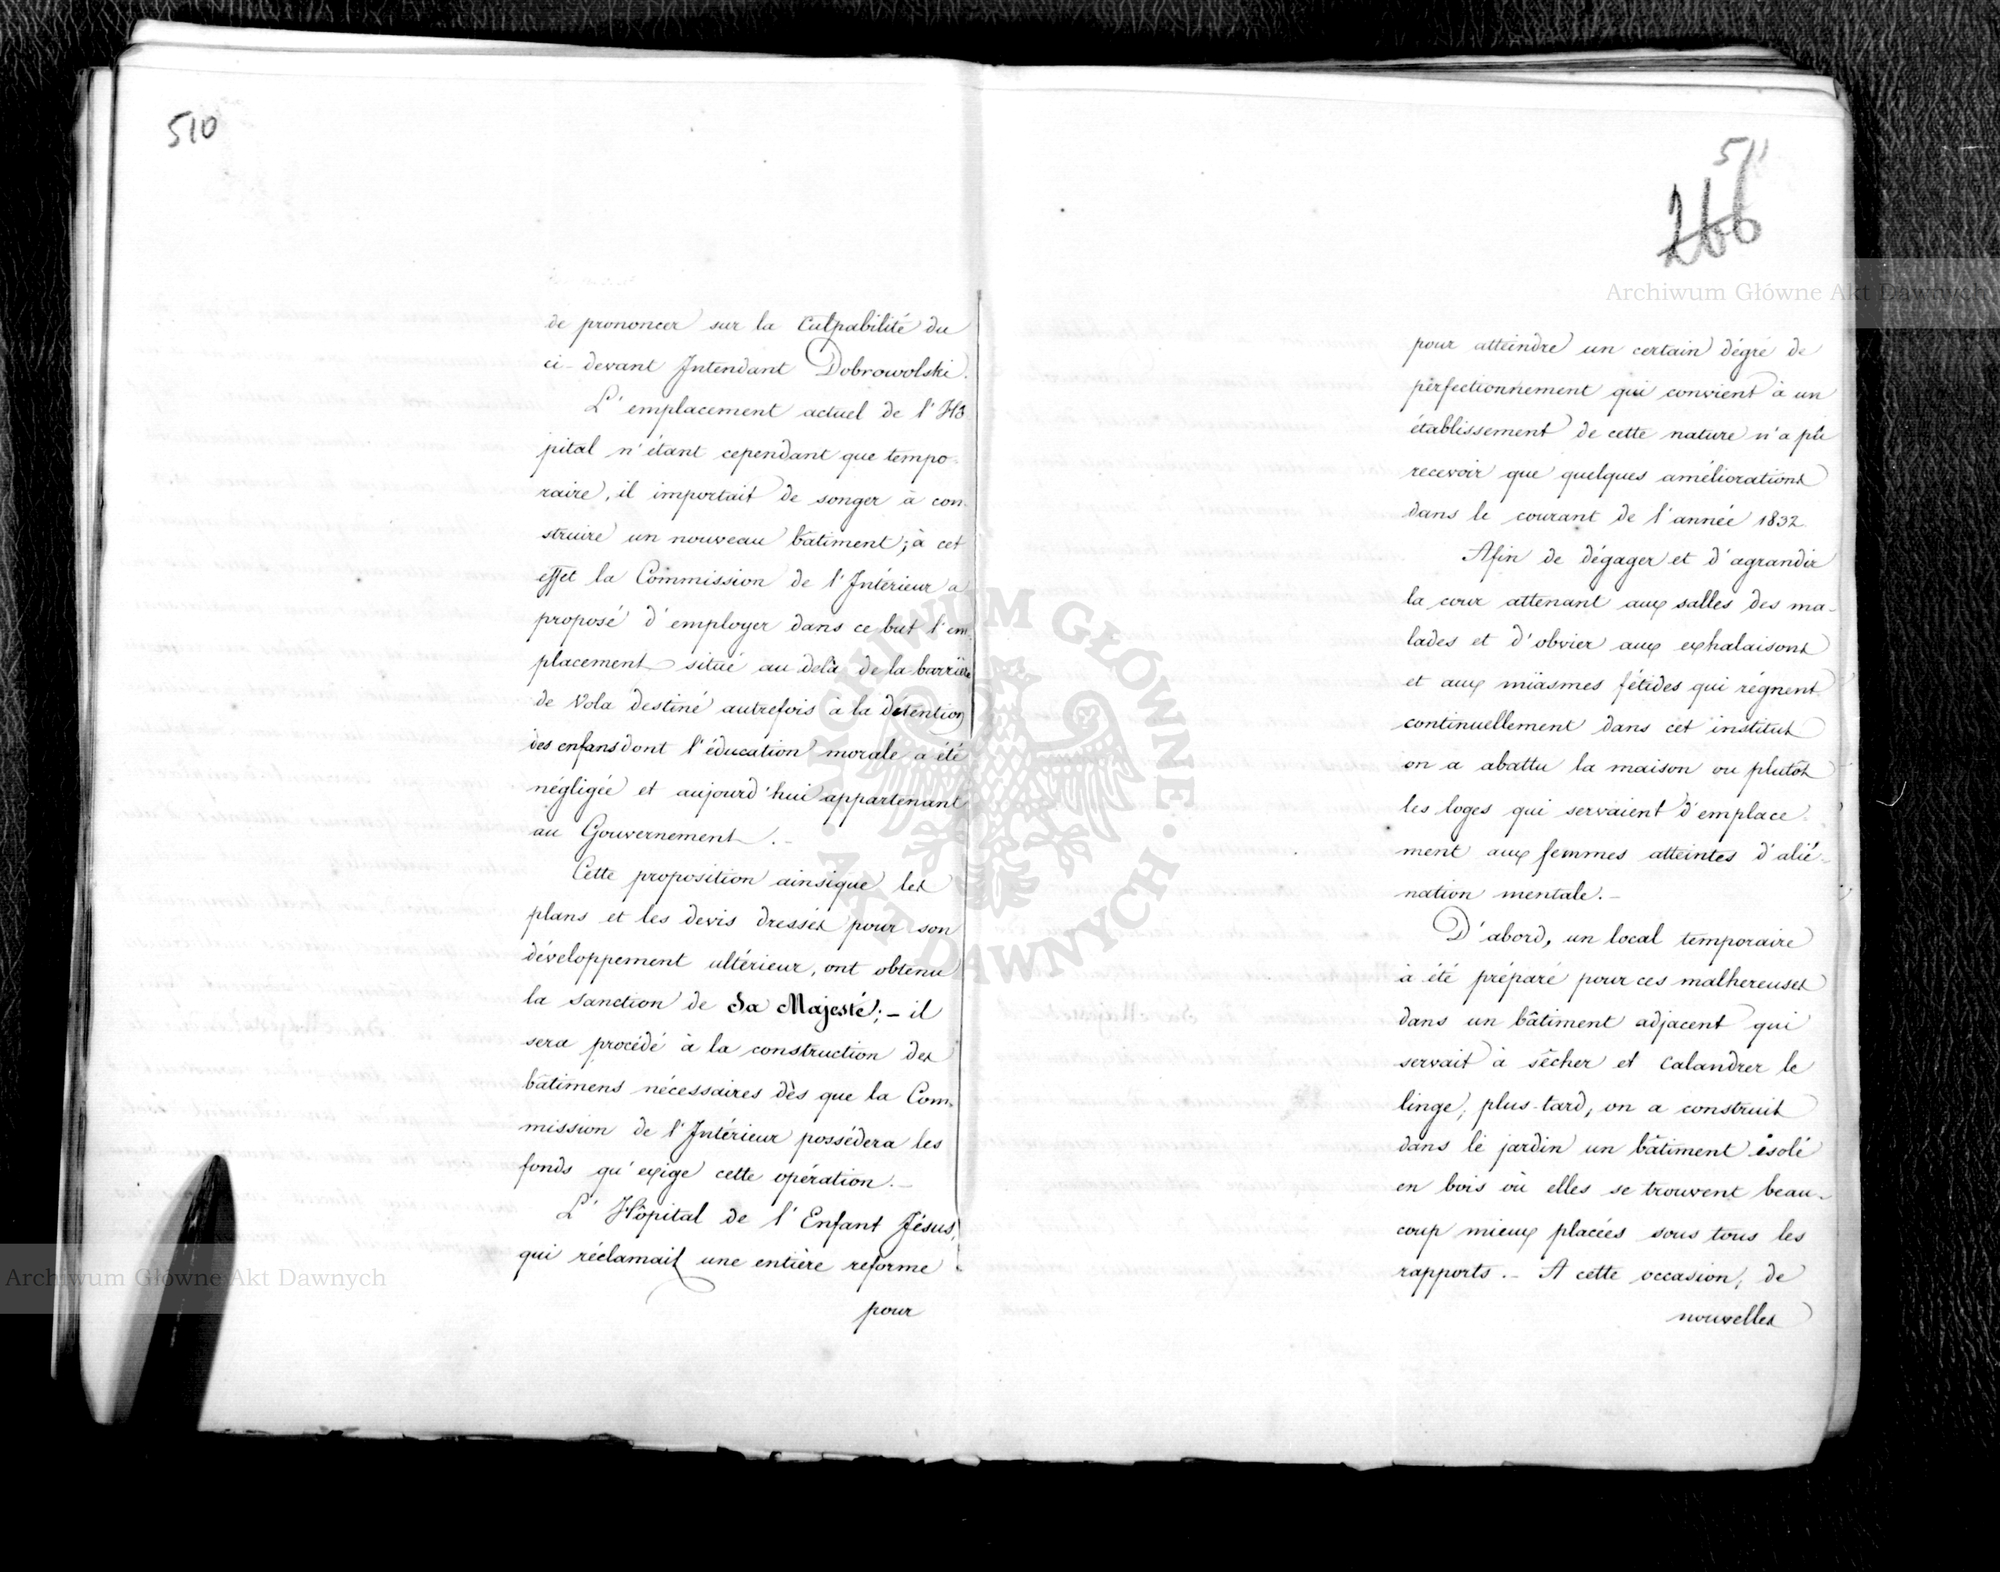 510
de prononcer sur la culpabilité du
ci-devant Intendant Dobrowolski.
L'emplacement actuel de l'Hô
pital n'étant cependant que tempo-
raire, il importait de songer à con-
struire un nouveau bâtiment; à cet
effet la Commission de l'Intérieur a
proposé d'employer dans ce but l'em-
placement situé au delà de la barrière
de Vola destiné autrefois à la détention
des enfans dont l'éducation morale a été
négligée et aujourd'hui appartenant
au Gouvernement.-
Cette proposition ainsique les
plans et les devis dressés pour son
développement ultérieur, ont obtenu
la sanction de Sa Majesté; – il
sera procédé à la construction des
bâtimens nécessaires dès que la Com-
mission de l'Intérieur possédera les
fonds qu'exige cette opération.–
L'Hôpital de l'Enfant Jésus,
qui réclamait une entière reforme
pour
511
266
pour atteindre un certain dégré de
perfectionnement qui convient à un
établissement de cette nature n'a pû
recevoir que quelques améliorations
dans le courant de l'année 1832.
Afin de dégager et d'agrandir
la cour attenant aux salles des ma-
lades et d'obvier aux exhalaisons
et aux miasmes fétides qui régnent
continuellement dans cet institut
on a abattu la maison ou plutôt
les loges qui servaient d'emplace-
ment aux femmes atteintes d'alié-
nation mentale.–
D'abord, un local temporaire
à été préparé pour ces malhereuses
dans un bâtiment adjacent qui
servait à sêcher et calandrer le
linge; plus-tard, on a construit
dans le jardin un bâtiment isolé
en bois où elles se trouvent beau-
coup mieux placées sous tous les
rapports.– A cette occasion, de
nouvelles
Archiwum Główne Akt Dawnych
Archiwum Główne Akt Dawnych
ARCHIWUM GŁÓWNE · AKT DAWNYCH ·